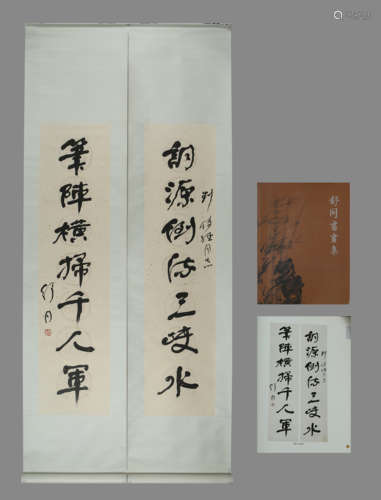 詞源倒流三峽水
筆陣橫掃千人軍
舒同
舒同書畫集
詞源倒流三峽水
筆陣橫掃千人軍
舒同